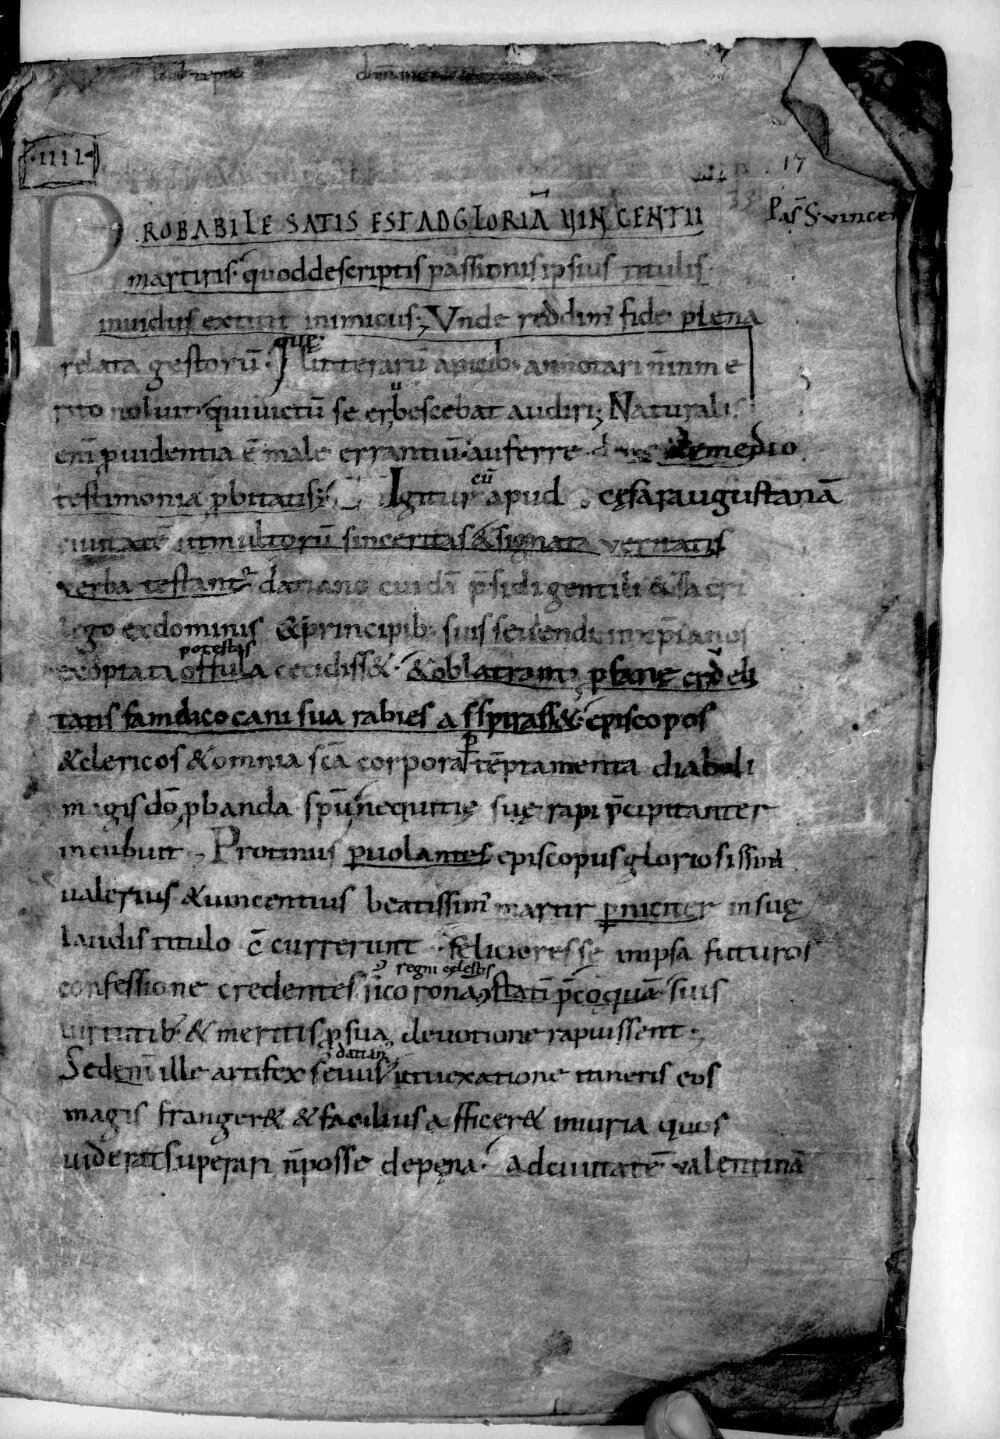 ·IIII·
17
Pas̄ S· vincen
PROBABILE SATIS EST AD GLORIĀ VINCENTII
martiris· quod descriptis passionis ipsius titulis·
inuidus extitit inimicus; Vnde reddim' fide plena
relata gestorū· que litterarū apicib; annotari n̄ inme
rito noluit· qui uictū se erubescebat audiri; Naturalis
eni ꝓuidentia ē male errantiū· auferre de remedio
testimonia ꝓbitatis; Igitur cū apud cęsaraugustanā
ciuitatē ut multorū sinceritas & signata ueritatis
uerba testant' datiano cuidā p̄sidi gentili & sacri
lego ex dominis & principib; suis seuiendi in xp̄ianos
exoptata offula potestatis cecidiss&· & oblatranti ꝓfanę crud̄eli
tatis famelico cani sua rabies aspirass&· episcopos
& clericos & omnia sc̄a corpora ꝑ tēptamenta diaboli
magis do ꝓbanda· sp̄u nequitię suę rapi p̄cipitanter
incubuit· Protinus ꝑuolantes episcopus gloriosissim'
ualerius & uincentius beatissim' martir ꝑniciter in suę
laudis titulo c̄currerunt· feliciores se in ipsa futuros
confessione credentes· si coronā regni cęlestis statī p̄ coęquā suis
uirtutib; & meritis ꝓ sua deuotione rapuissent·;
Sed em̄ ille artifex seuus datian' itu uexatione itineris eos
magis franger& & facilius afficer& iniuria quos
uiderat superari n̄ posse de pęna· ad ciuitatē ualentinā